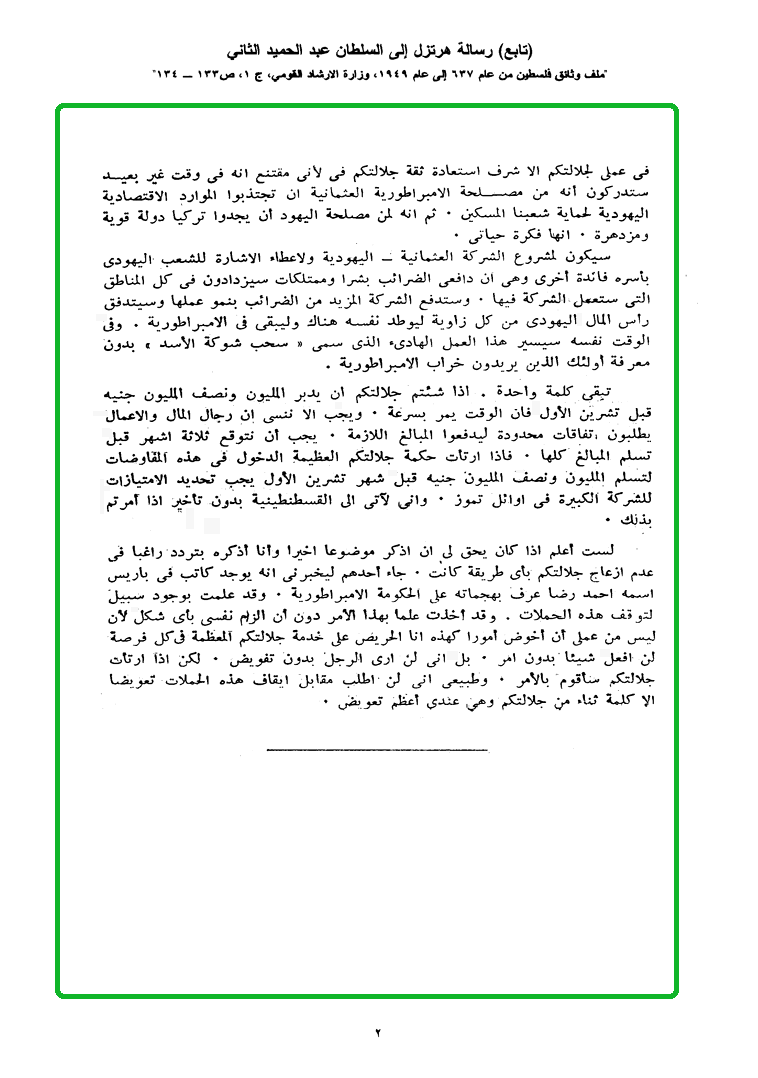 (تابع) رسالة هرتزل إلى السلطان عبد الحميد الثاني
"ملف وثائق فلسطين من عام ٦٣٧ إلى عام ١٩٤٩، وزارة الارشاد القومي، ج ١، ص١٣٣ ــ ١٣٤"
فى عملى لجلالتكم الا شرف استعادة ثقة جلالتكم فى لأنى مقتنع انه فى وقت غير بعيـــد
ستدركون أنه من مصـــلحة الامبراطورية العثمانية ان تجتذبوا الموارد الاقتصادية
اليهودية لحماية شعبنا المسكين ٠ ثم انه لمن مصلحة اليهود أن يجدوا تركيا دولة قوية
ومزدهرة ٠ انها فكرة حياتى ٠
سيكون لمشروع الشركة العثمانية ــ اليهودية ولاعطاء الاشارة للشعب اليهودى
بأسره فائدة أخرى وهى ان دافعى الضرائب بشرا وممتلكات سيزدادون فى كل المناطق
التى ستعمل الشركة فيها ٠ وستدفع الشركة المزيد من الضرائب بنمو عملها وسيتدفق
رأس المال اليهودى من كل زاوية ليوطد نفسه هناك وليبقى فى الامبراطورية . وفى
الوقت نفسه سيسير هذا العمل الهادىء الذى سمى « سحب شوكة الأسد » بدون
معرفة أولئك الذين يريدون خراب الامبراطورية .
تبقى كلمة واحدة . اذا شئتم جلالتكم ان يدبر المليون ونصف المليون جنيه
قبل تشرين الأول فان الوقت يمر بسرعة ٠ ويجب الا ننسى ان رجال المال والاعمال
يطلبون اتفاقات محدودة ليدفعوا المبالغ اللازمة ٠ يجب أن نتوقع ثلاثة اشهر قبل
تسلم المبالغ كلها ٠ فاذا ارتأت حكمة جلالتكم العظيمة الدخول فى هذه المفاوضات
لتسلم المليون ونصف المليون جنيه قبل شهر تشرين الأول يجب تحديد الامتيازات
للشركة الكبيرة فى اوائل تموز ٠ وانى لآتى الى القسطنطينية بدون تأخير اذا أمرتم
بذلك ٠
لست أعلم اذا كان يحق لى ان اذكر موضوعا اخيرا وأنا أذكره بتردد راغبا فى
عدم ازعاج جلالتكم بأى طريقة كانت ٠ جاء أحدهم ليخبرنى انه يوجد كاتب فى باريس
اسمه احمد رضا عرف بهجماته على الحكومة الامبراطورية ٠ وقد علمت بوجود سبيل
لتوقف هذه الحملات . وقد أخذت علما بهذا الأمر دون أن الزم نفسى بأى شكل لأن
ليس من عملى أن أخوض أمورا كهذه انا الحريص على خدمة جلالتكم المعظمة فى كل فرصة
لن افعل شيئا بدون امر ٠ بل انى لن ارى الرجل بدون تفويض ٠ لكن اذا ارتأت
جلالتكم سأقوم بالأمر ٠ وطبيعى انى لن اطلب مقابل ايقاف هذه الحملات تعويضا
الا كلمة ثناء من جلالتكم وهى عندى أعظم تعويض ٠
٢